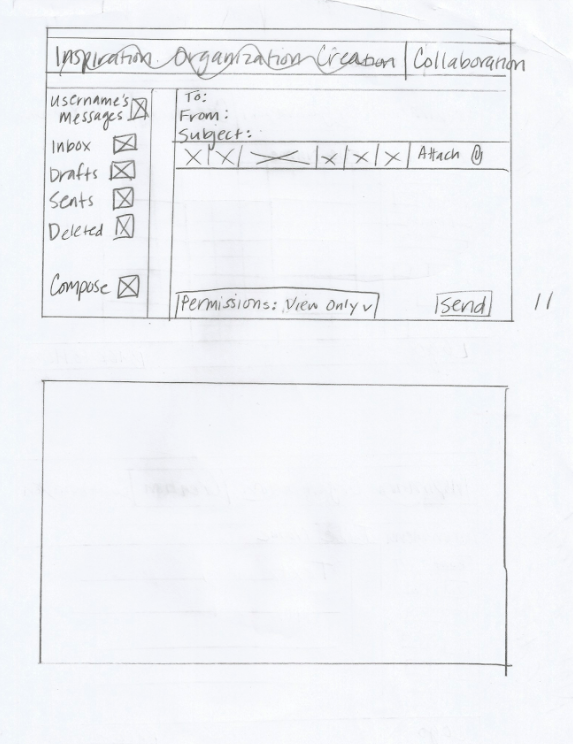 Inspiration Organization Creation | Collaboration
Username's
messages
Inbox
Drafts
Sents
Deleted
Compose
To:
From:
Subject:
Attach
Permissions: View Only v
Send
11